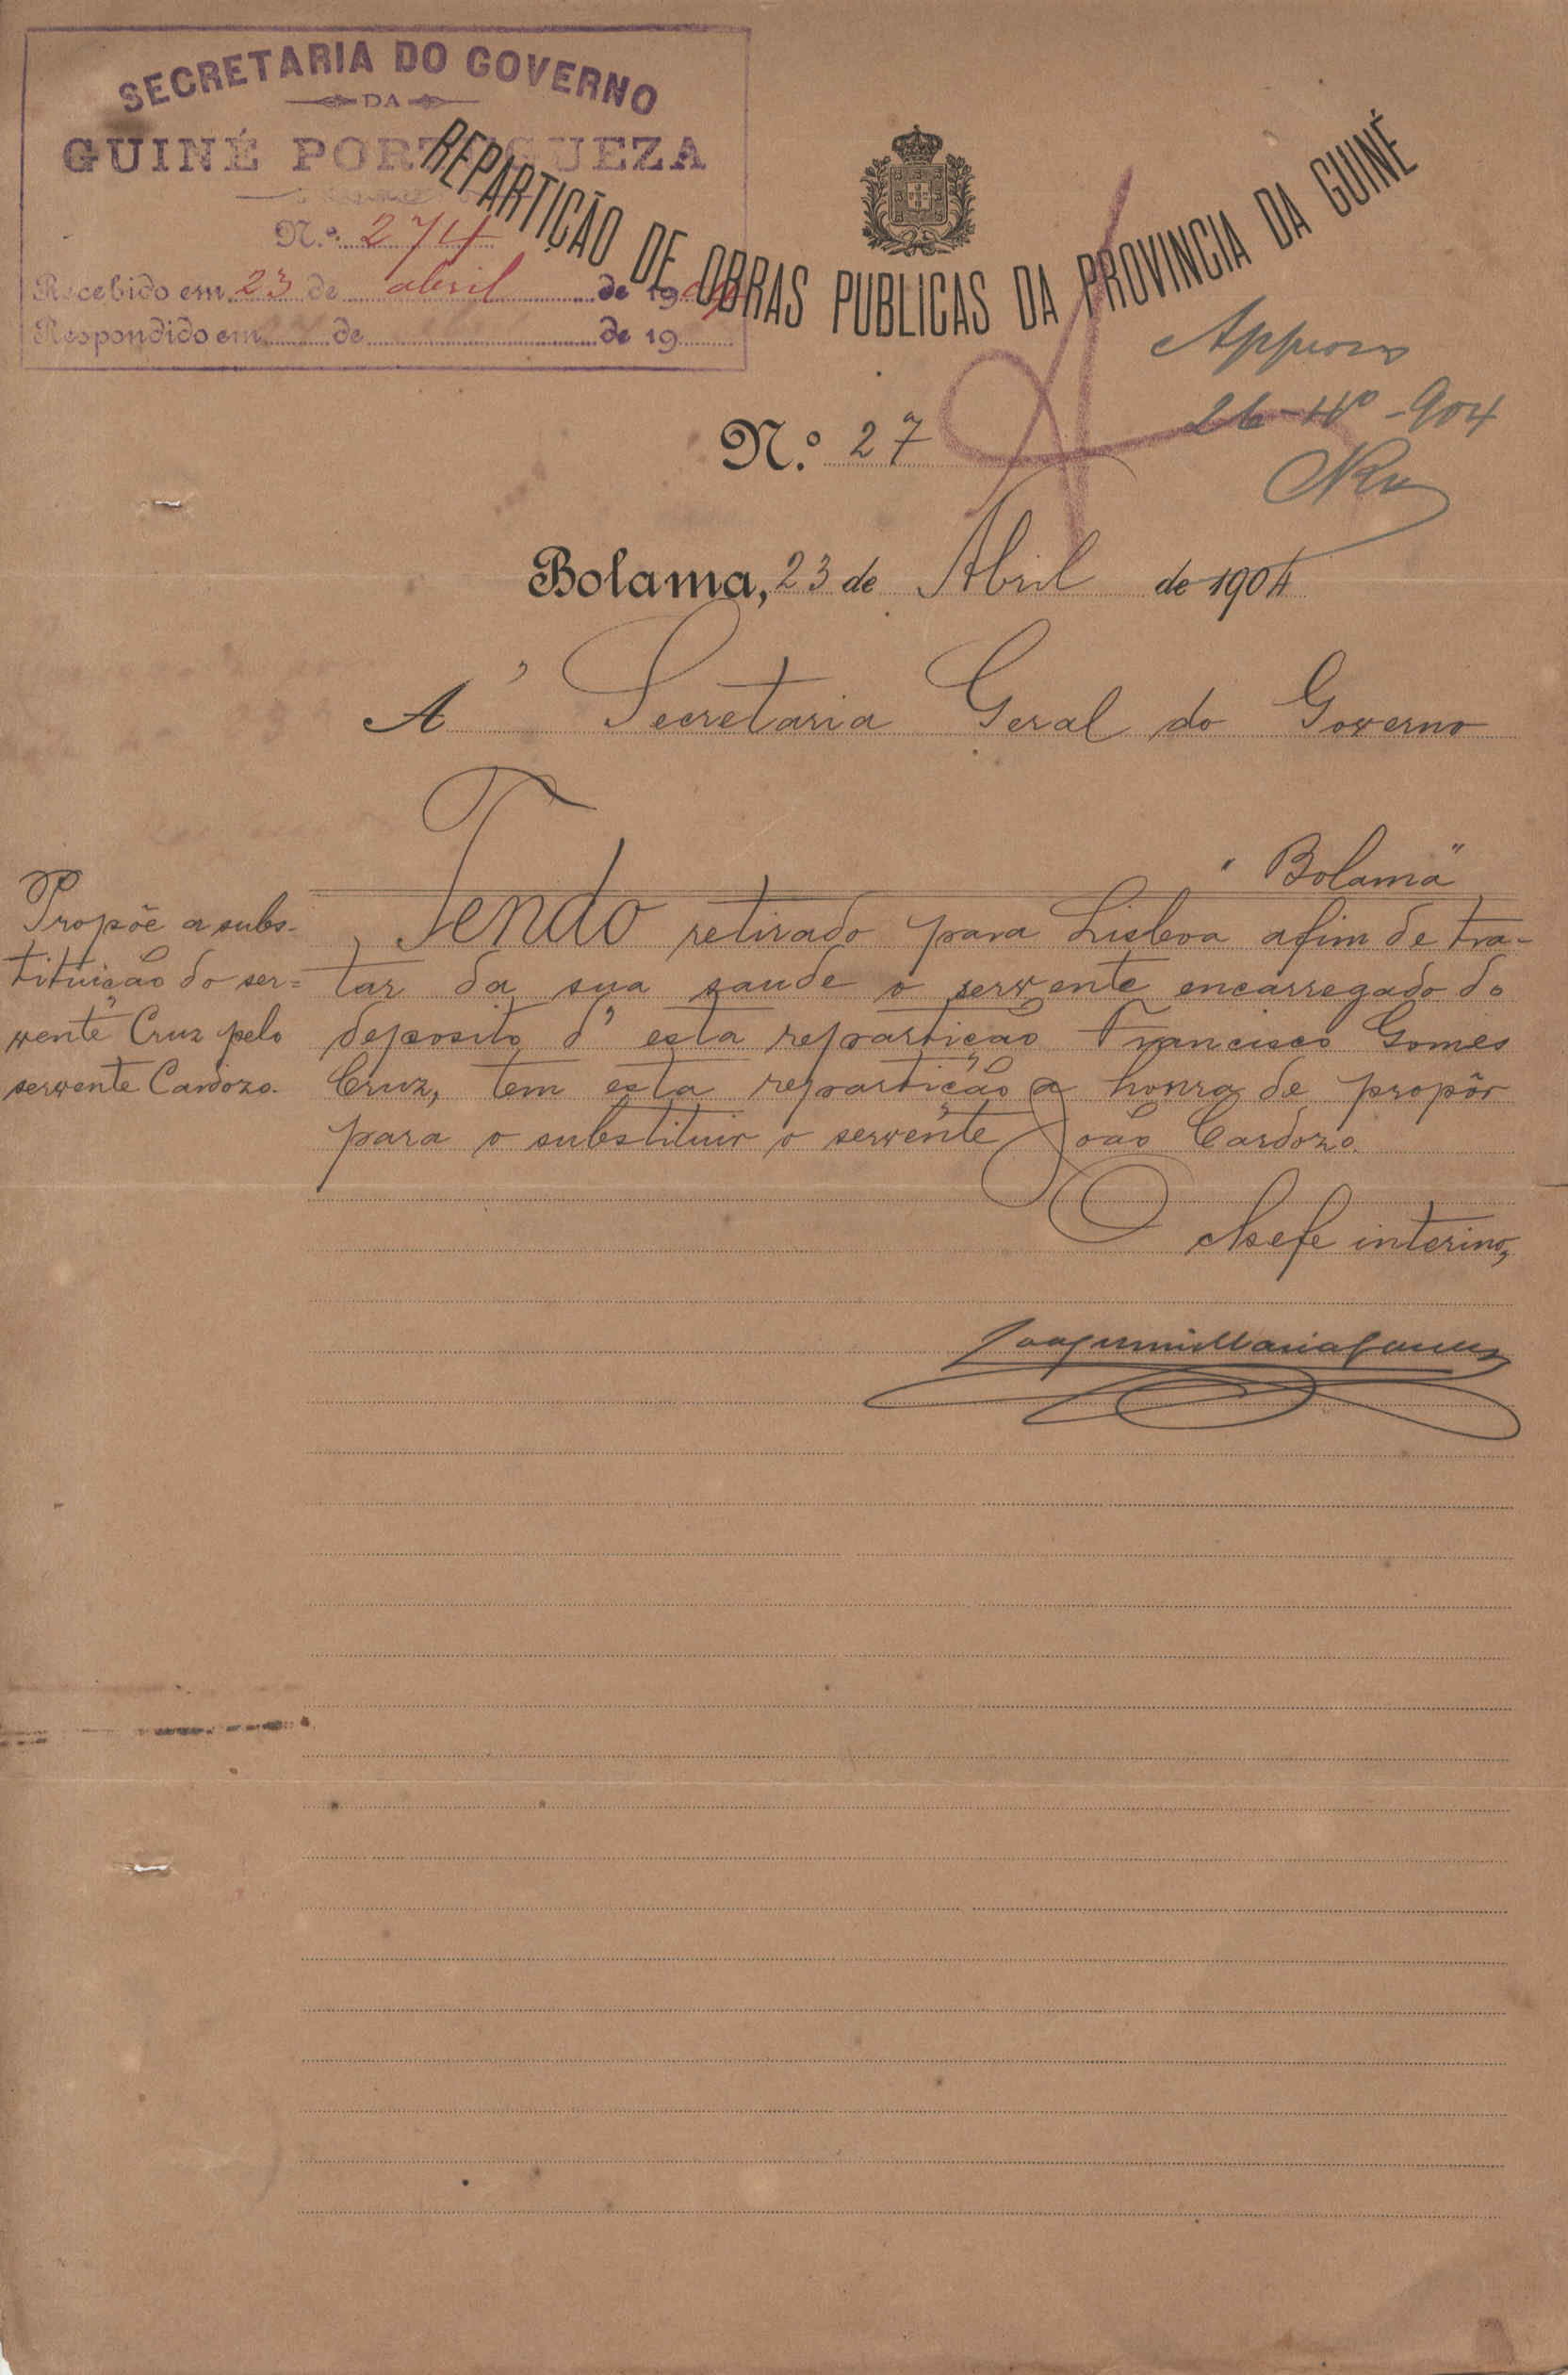 SECRETARIA DO GOVERNO
DA
GUINÉ PORTUGUEZA
N.º 274
Recebido em 23 de abril de 1904
Respondido em de de 19
REPARTIÇÃO DE OBRAS PUBLICAS DA PROVINCIA DA GUINÉ
Approvo
26-4º-904
N.º 27
Bolama, 23 de Abril de 1904
A' Secretaria Geral do Governo
"Bolama"
Propõe a subs-
tituição do ser=
vente Cruz pelo
servente Cardozo.
Tendo retirado para Lisboa afim de tra-
tar da sua saude o servente encarregado do
deposito d'esta repartição Francisco Gomes
Cruz, tem esta repartição a honra de propôr
para o substituir o servente João Cardozo.
O chefe interino,
Joaquim Maria